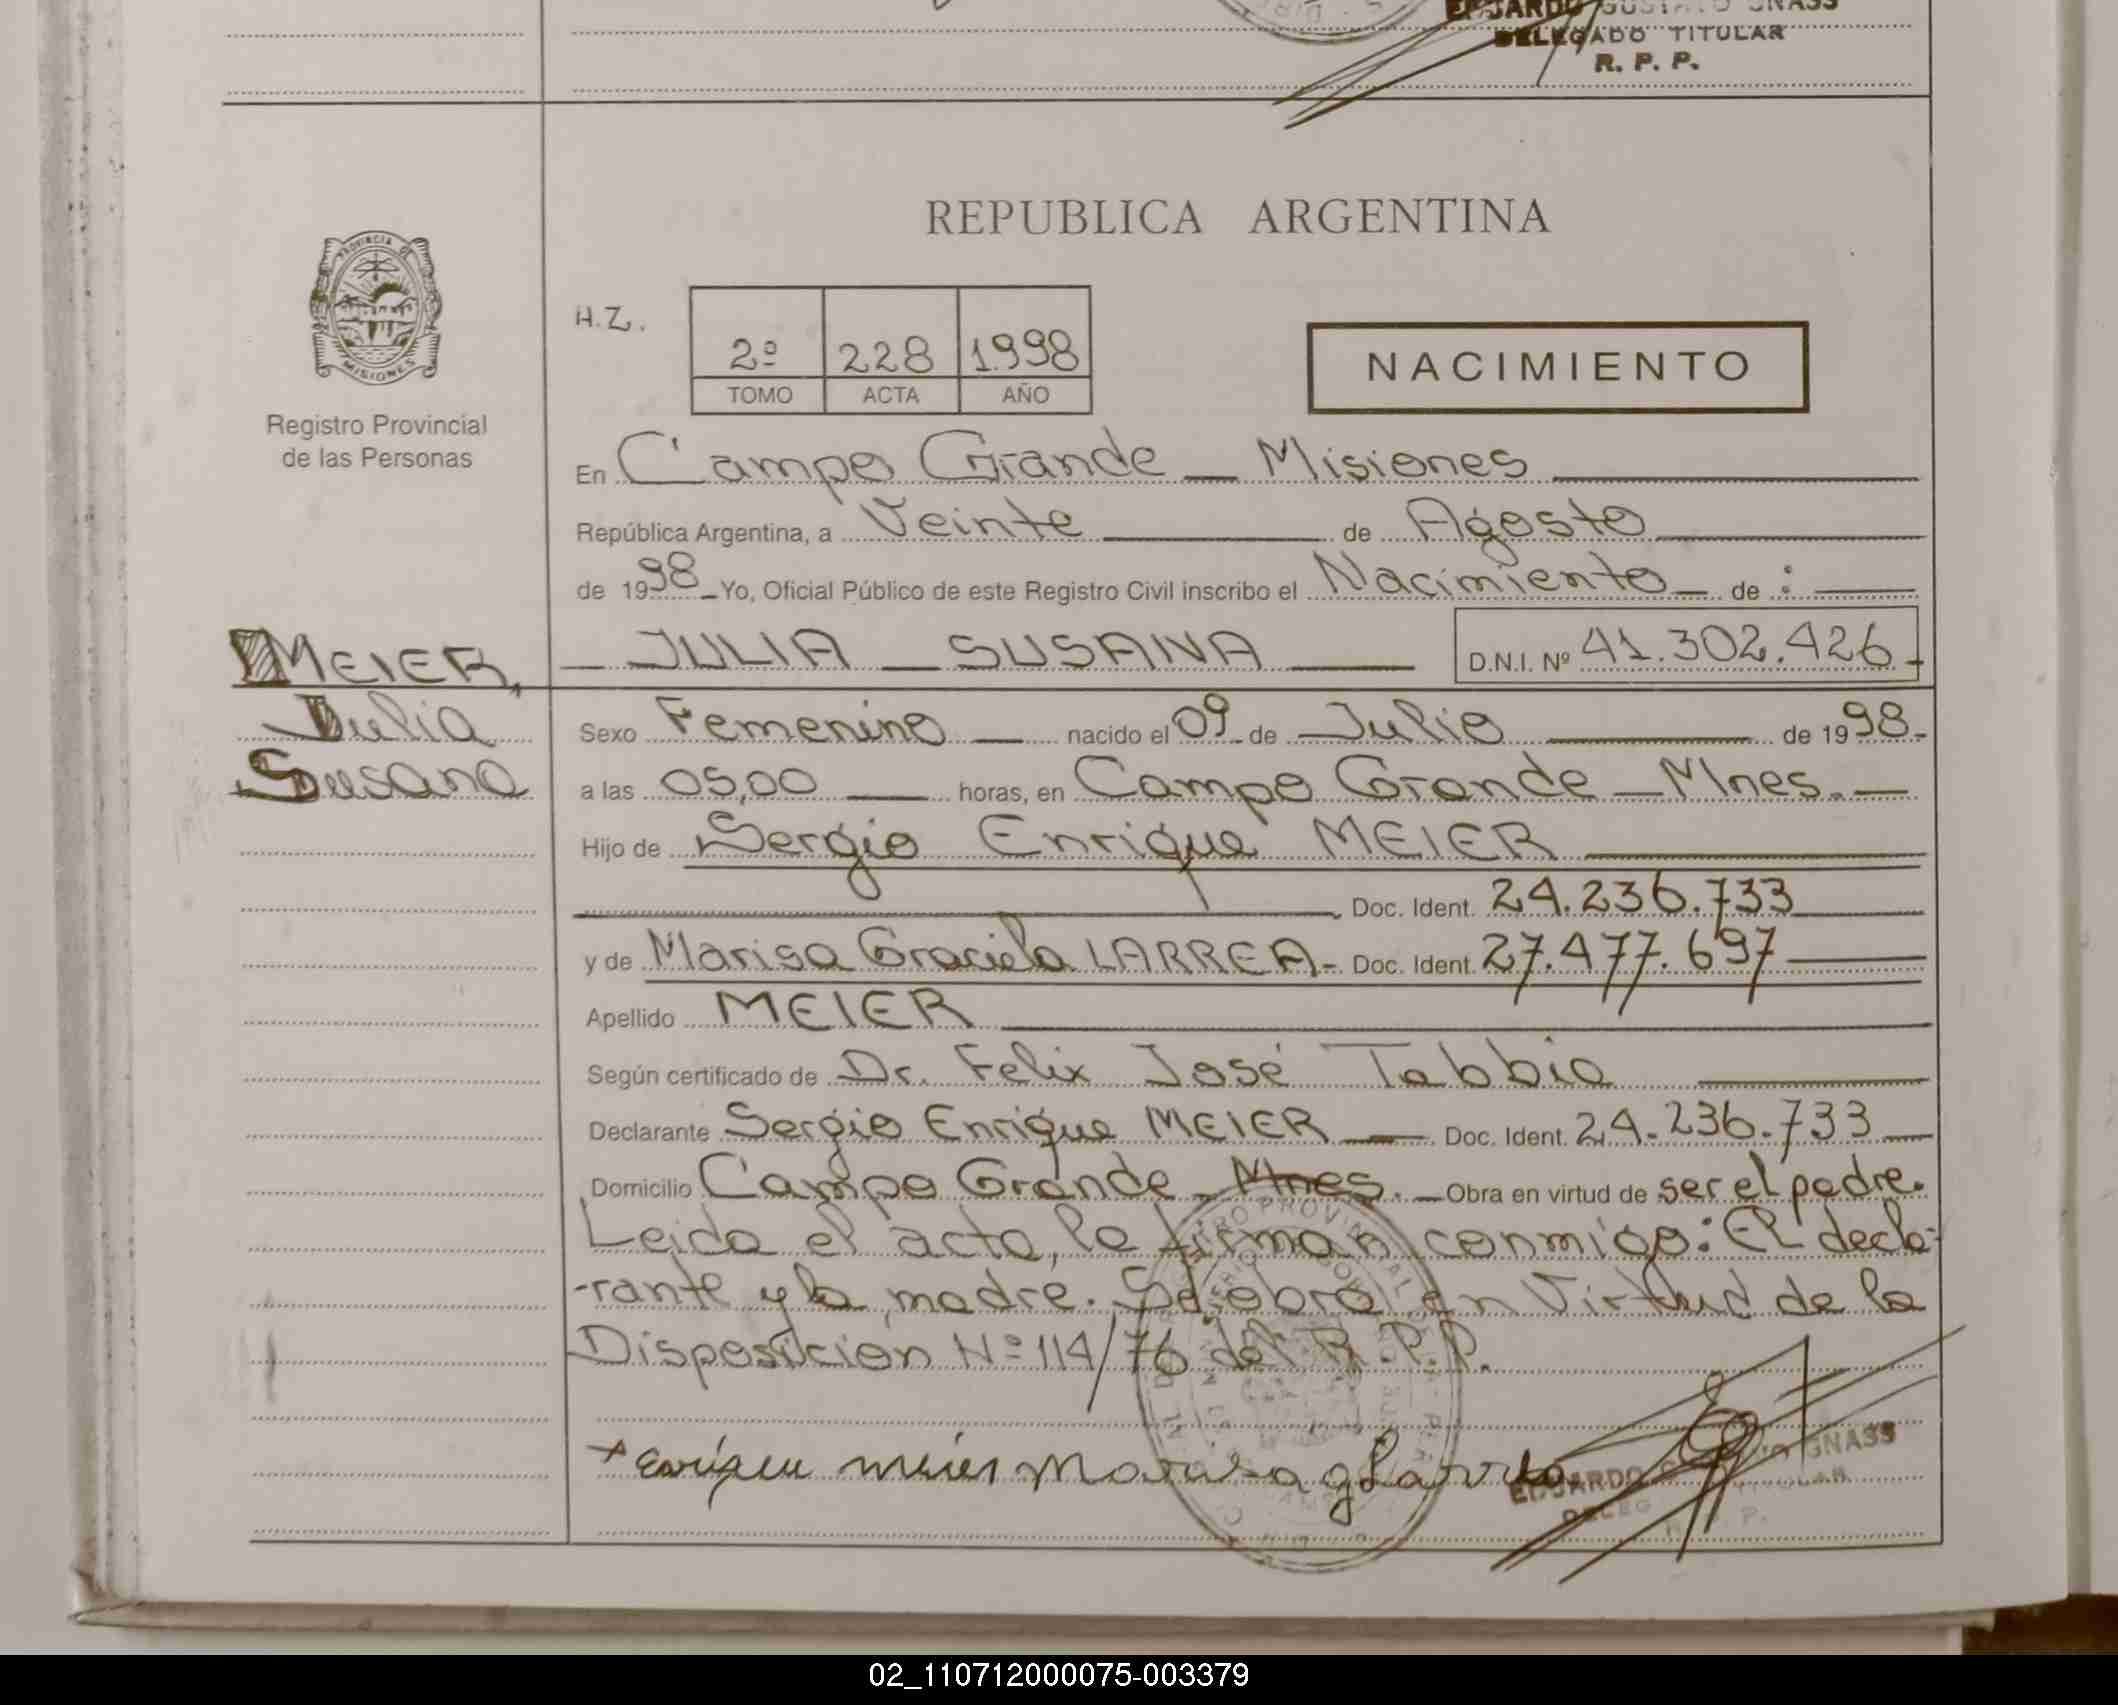 EDUARDO GUSTAVO GNASS
DELEGADO TITULAR
R. P. P.
PROVINCIA DE
MISIONES
Registro Provincial
de las Personas
REPUBLICA ARGENTINA
H.Z.
2º 228 1.998
TOMO ACTA AÑO
NACIMIENTO
En Campo Grande — Misiones
República Argentina, a Veinte de Agosto
de 1998 — Yo, Oficial Público de este Registro Civil inscribo el Nacimiento — de :
MEIER,
Julia
Susana
— JULIA — SUSANA — D.N.I. Nº 41.302.426 -
Sexo Femenino — nacido el 09 de Julio de 1998.-
a las 05,00 — horas, en Campo Grande — Mnes. —
Hijo de Sergio Enrique MEIER
Doc. Ident. 24.236.733
y de Marisa Graciela LARREA - Doc. Ident. 27.477.697
Apellido MEIER
Según certificado de Dr. Felix José Tabbia
Declarante Sergio Enrique MEIER — Doc. Ident. 24.236.733
Domicilio Campo Grande — Mnes. — Obra en virtud de ser el padre.
Leida el acta, la firman conmigo: El decla-
-rante y la madre. Se obra en Virtud de la
Disposición Nº 114/76 del R.P.P.
Enrique meier Marisa g Larrea
EDUARDO GNASS
02_110712000075-003379